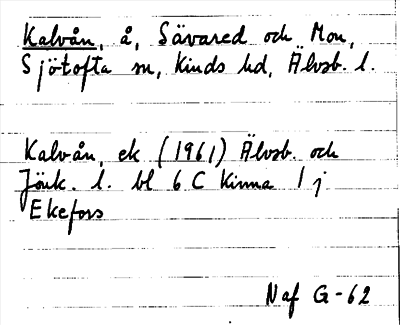 Kalvån, å, Sävared och Mon,
Sjötofta sn, Kinds hd, Älvsb. l.
Kalvån, ek (1961) Älvsb. och
Jönk. l. bl 6 C Kinna 1 j
Ekefors
Naf G-62